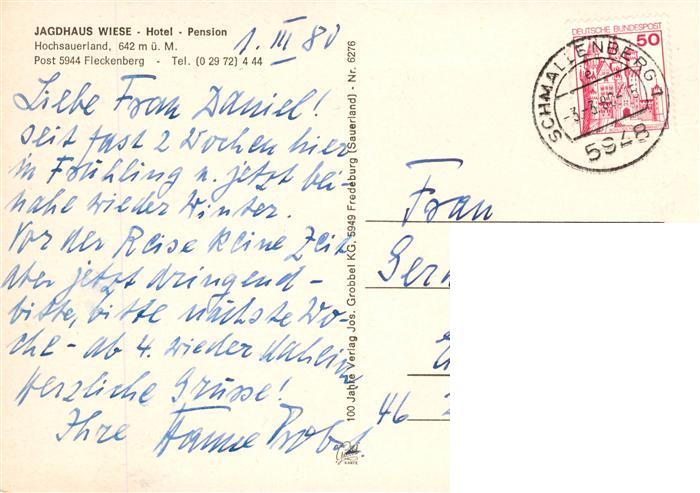 JAGDHAUS WIESE · Hotel · Pension
Hochsauerland, 642 m ü. M.
Post 5944 Fleckenberg - Tel. (0 29 72) 4 44
1. III 80
Liebe Frau Daniel!
seit fast 2 Wochen hier
in Frühling u. jetzt bei-
nahe wieder Winter.
Vor der Reise keine Zeit
aber jetzt dringend -
bitte, bitte nächste Wo-
che - ab 4. wieder daheim
Herzliche Grüsse!
Ihre Hanne Probst
100 Jahre Verlag Jos. Grobbel KG, 5949 Fredeburg (Sauerland) - Nr. 6276
KARTE
DEUTSCHE BUNDESPOST
50
SCHMALLENBERG 1
5948
Frau
46